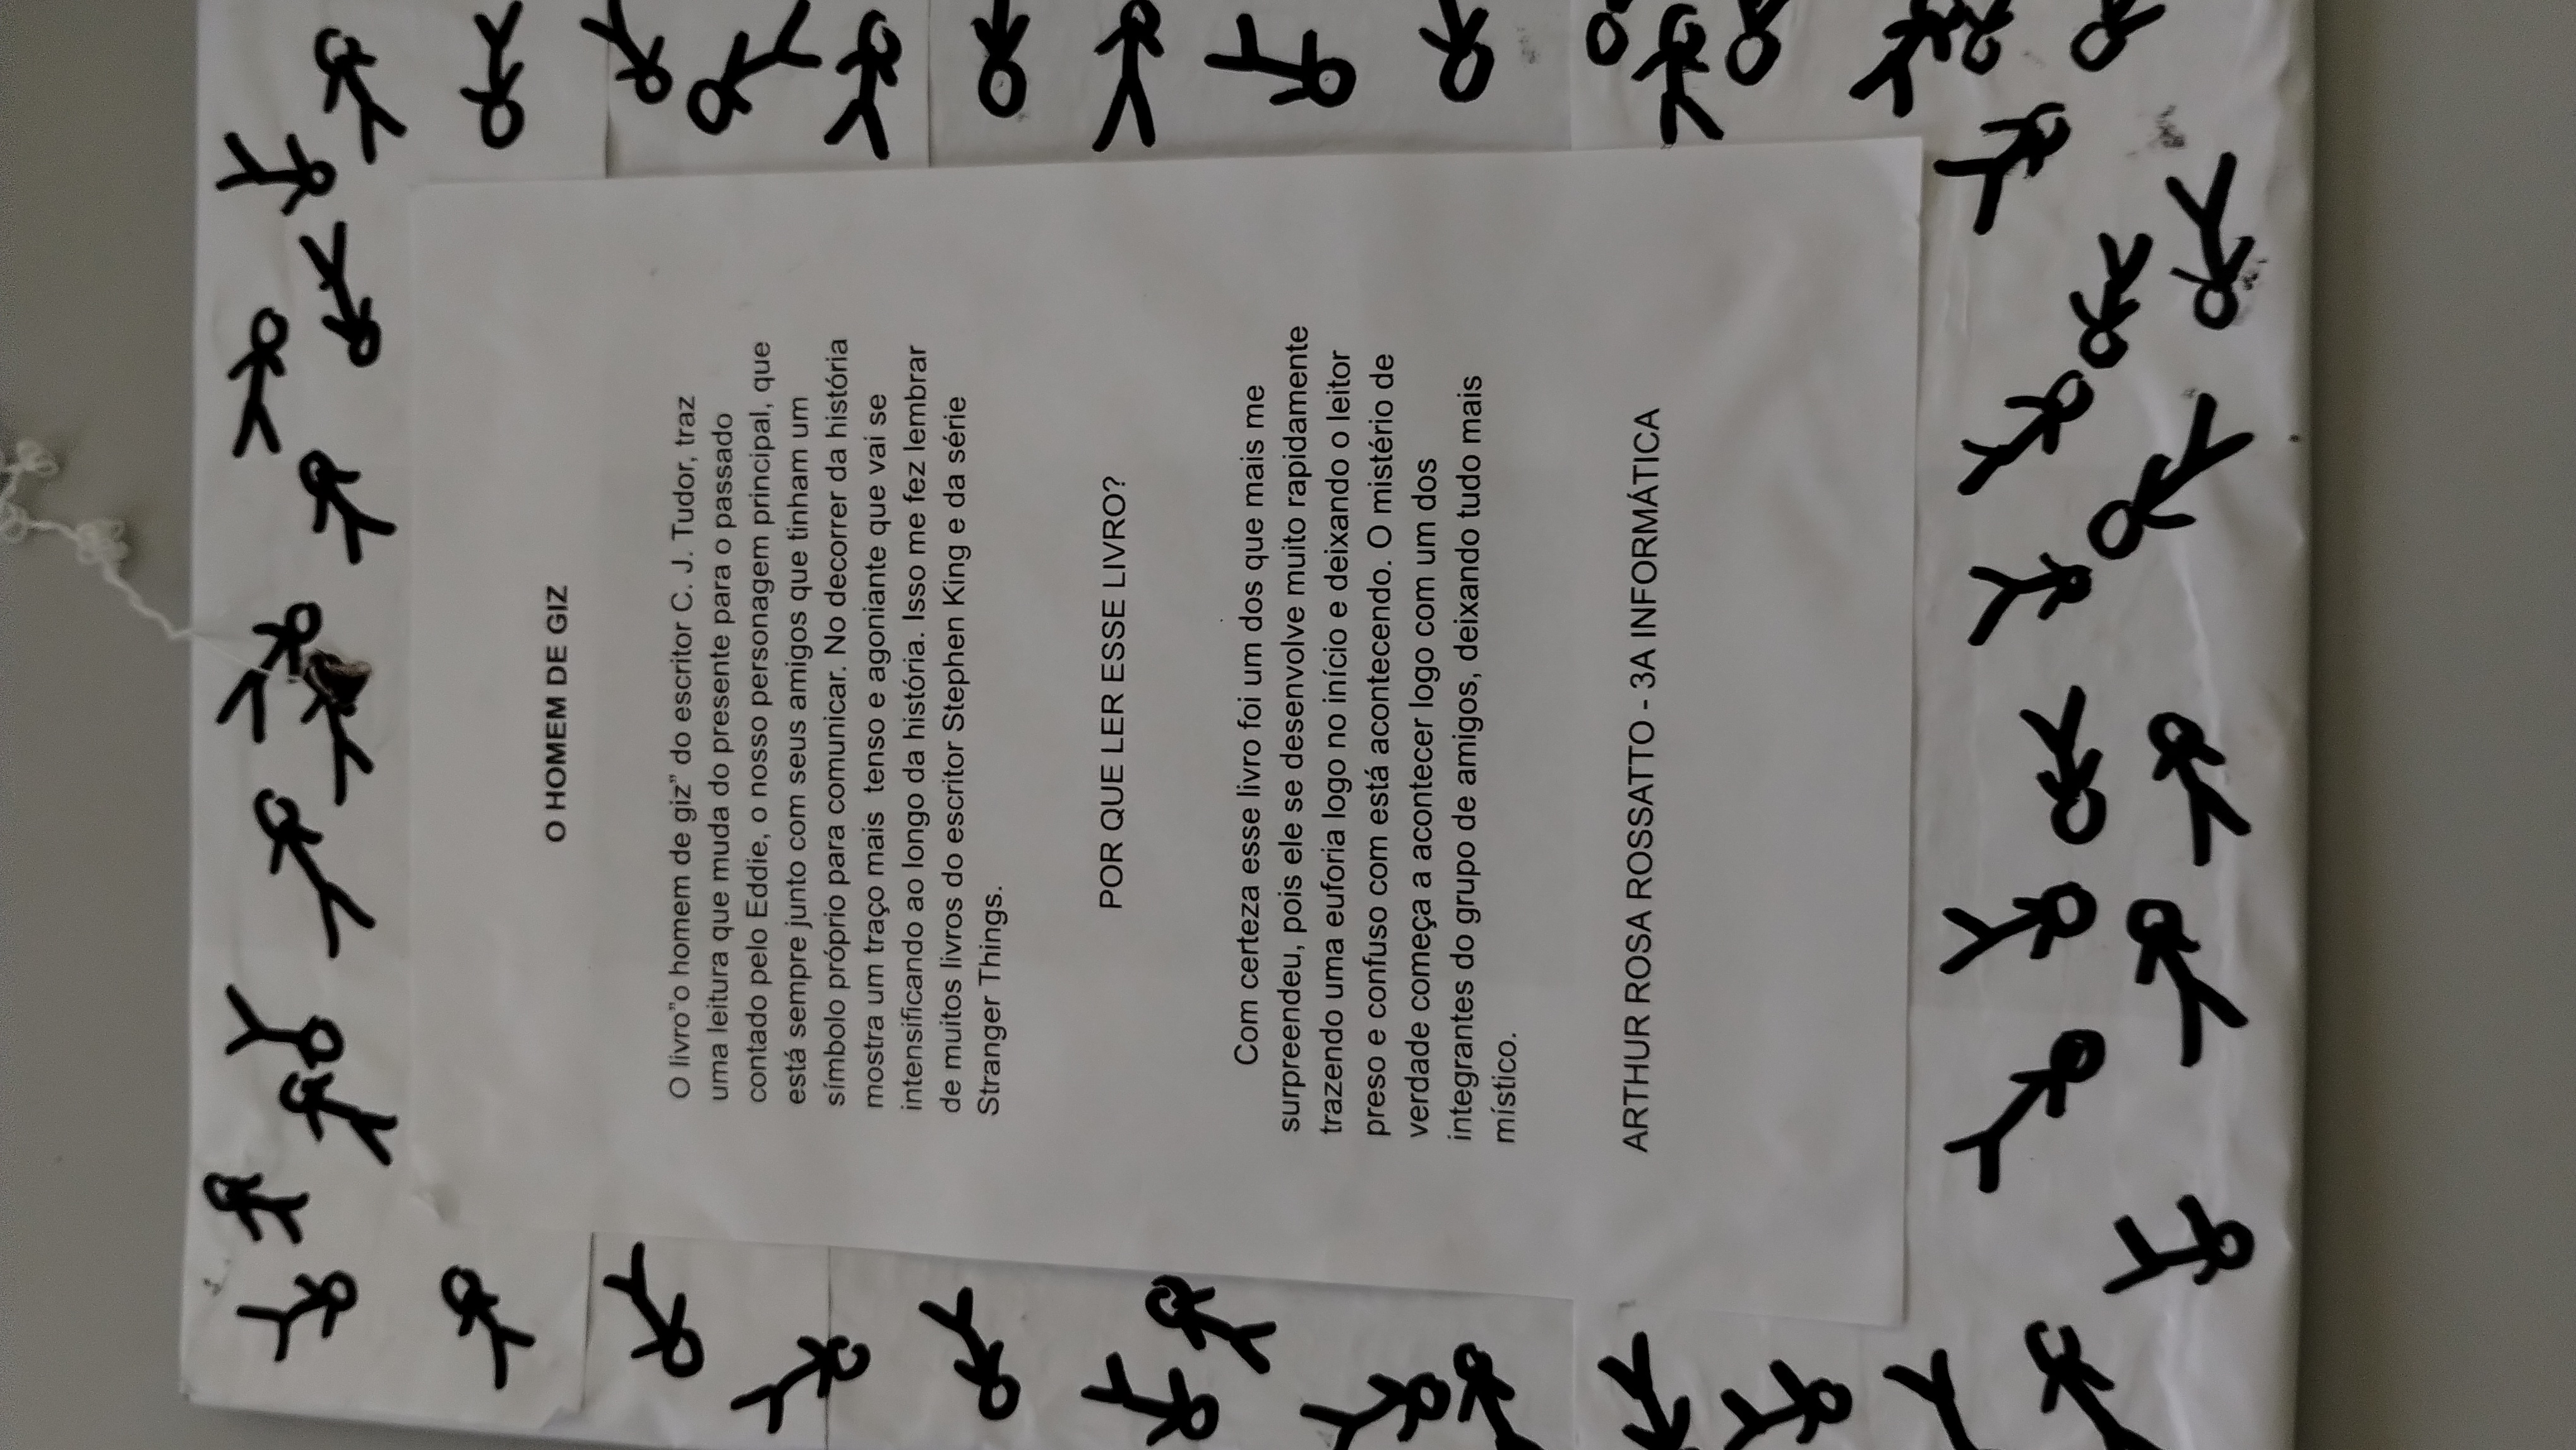 O HOMEM DE GIZ
O livro"o homem de giz" do escritor C. J. Tudor, traz
uma leitura que muda do presente para o passado
contado pelo Eddie, o nosso personagem principal, que
está sempre junto com seus amigos que tinham um
símbolo próprio para comunicar. No decorrer da história
mostra um traço mais tenso e agoniante que vai se
intensificando ao longo da história. Isso me fez lembrar
de muitos livros do escritor Stephen King e da série
Stranger Things.
POR QUE LER ESSE LIVRO?
Com certeza esse livro foi um dos que mais me
surpreendeu, pois ele se desenvolve muito rapidamente
trazendo uma euforia logo no início e deixando o leitor
preso e confuso com está acontecendo. O mistério de
verdade começa a acontecer logo com um dos
integrantes do grupo de amigos, deixando tudo mais
místico.
ARTHUR ROSA ROSSATTO - 3A INFORMÁTICA